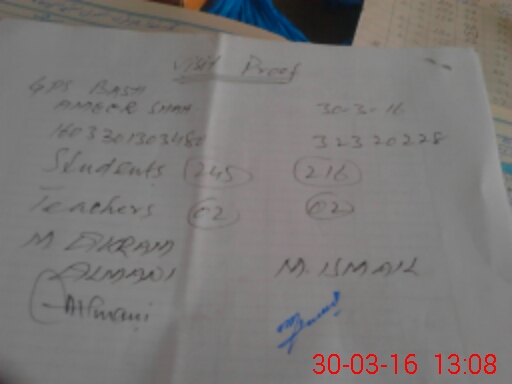 Visit Proof
GPS BASTI
AMEER SHAH 30-3-16
32320228
Students 245 216
Teachers 02 02
M. AKRAM
ALMANI M. ISMAIL
Almani
30-03-16 13:08